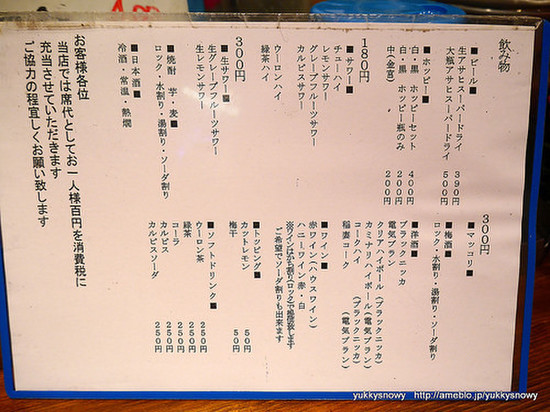 飲み物
■ビール■
生アサヒスーパードライ 390円
大瓶アサヒスーパードライ 500円
■ホッピー■
白・黒 ホッピーセット 400円
白・黒 ホッピー瓶のみ 200円
中(金宮) 200円
180円
■サワー■
チューハイ
レモンサワー
グレープフルーツサワー
カルピスサワー
ウーロンハイ
緑茶ハイ
300円
■生サワー■
生グレープフルーツサワー
生レモンサワー
■焼酎 芋・麦■
ロック・水割り・湯割り・ソーダ割り
■日本酒■
冷酒・常温・熱燗
300円
■マッコリ■
■梅酒■
ロック・水割り・湯割り・ソーダ割り
■洋酒■
ブラックニッカ
電気ブラン
クリアハイボール(ブラックニッカ)
カミナリハイボール(電気ブラン)
コークハイ (ブラックニッカ)
稲妻コーク (電気ブラン)
■ワイン■
赤ワイン(ハウスワイン)
ハニーワイン赤・白
※ワインはかち割り(ロック)で提供致します
ご希望でソーダ割りも出来ます
■トッピング■
カットレモン 50円
梅干 50円
■ソフトドリンク■
ウーロン茶 250円
緑茶 250円
コーラ 250円
カルピス 250円
カルピスソーダ 250円
お客様各位
当店では席代としてお一人様百円を消費税に
充当させていただきます
ご協力の程宜しくお願い致します
yukkysnowy http://ameblo.jp/yukkysnowy